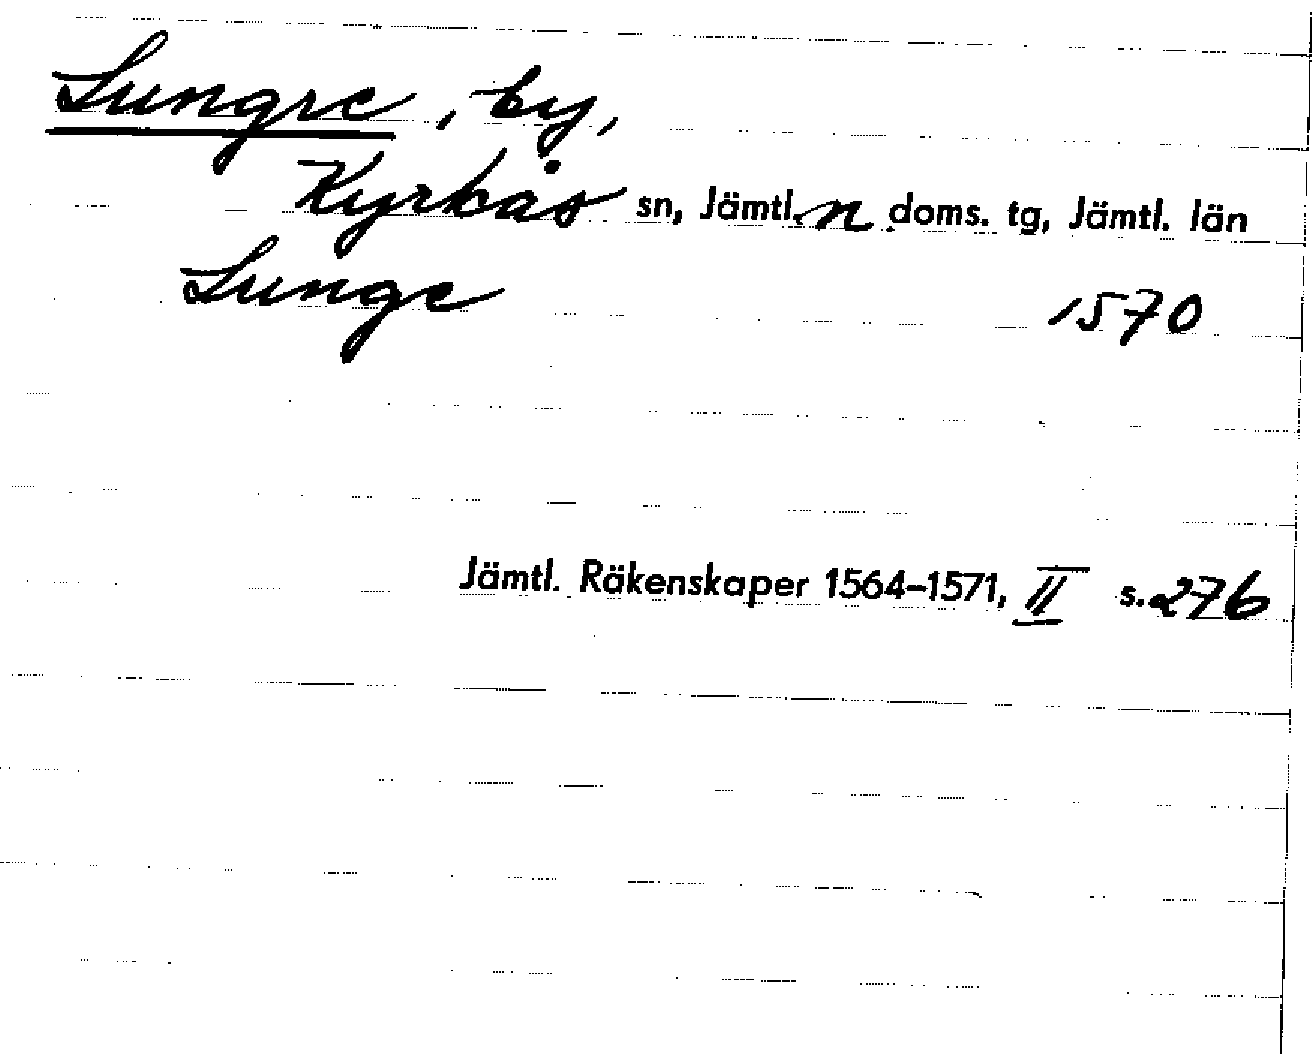 Lungre, by,
Kyrkås sn, Jämtl. n doms. tg, Jämtl. län
Lunge 1570
Jämtl. Räkenskaper 1564–1571, II s. 276